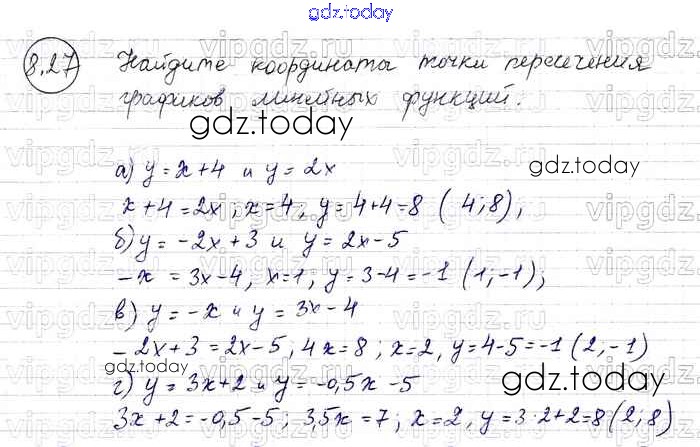 gdz.today
8.27 Найдите координаты точки пересечения
графиков линейных функций.
gdz.today
gdz.today
а) y = x+4 и y = 2x
x+4=2x; x=4, y=4+4=8 (4;8);
б) y = -2x+3 и y = 2x-5
-x = 3x-4, x=1, y=3-4=-1 (1;-1);
в) y = -x и y = 3x-4
-2x+3=2x-5, 4x=8; x=2, y=4-5=-1 (2,-1)
gdz.today
gdz.today
г) y = 3x+2 и y = -0,5x-5
3x+2=-0,5-5; 3,5x=7; x=2, y=3·2+2=8 (2;8)
gdz.today
vipgdz.ru